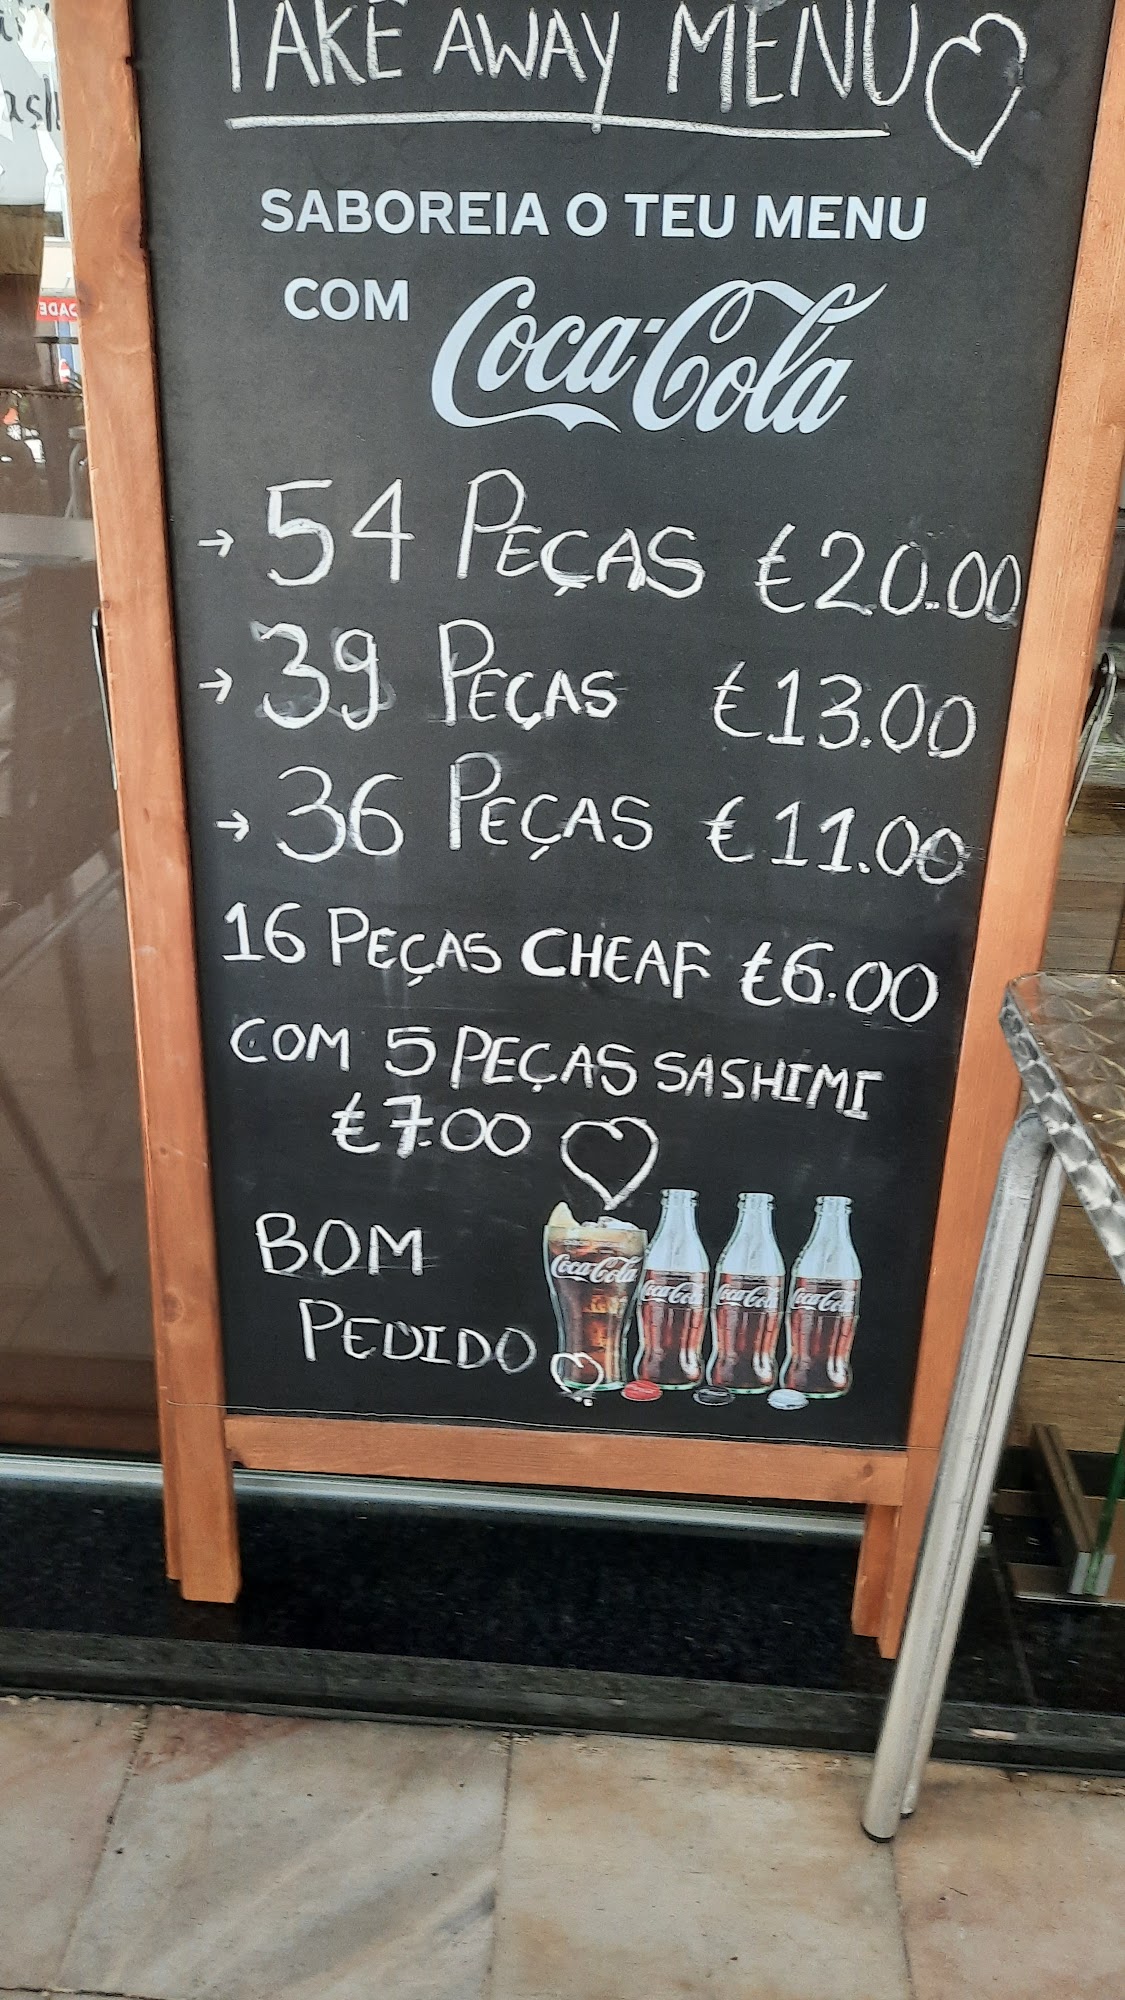 TAKE AWAY MENU
SABOREIA O TEU MENU
COM Coca-Cola
→ 54 PEÇAS €20.00
→ 39 PEÇAS €13.00
→ 36 PEÇAS €11.00
16 PEÇAS CHEAF €6.00
COM 5 PEÇAS SASHIMI
€7.00
BOM
PEDIDO
Coca-Cola Coca-Cola Coca-Cola Coca-Cola